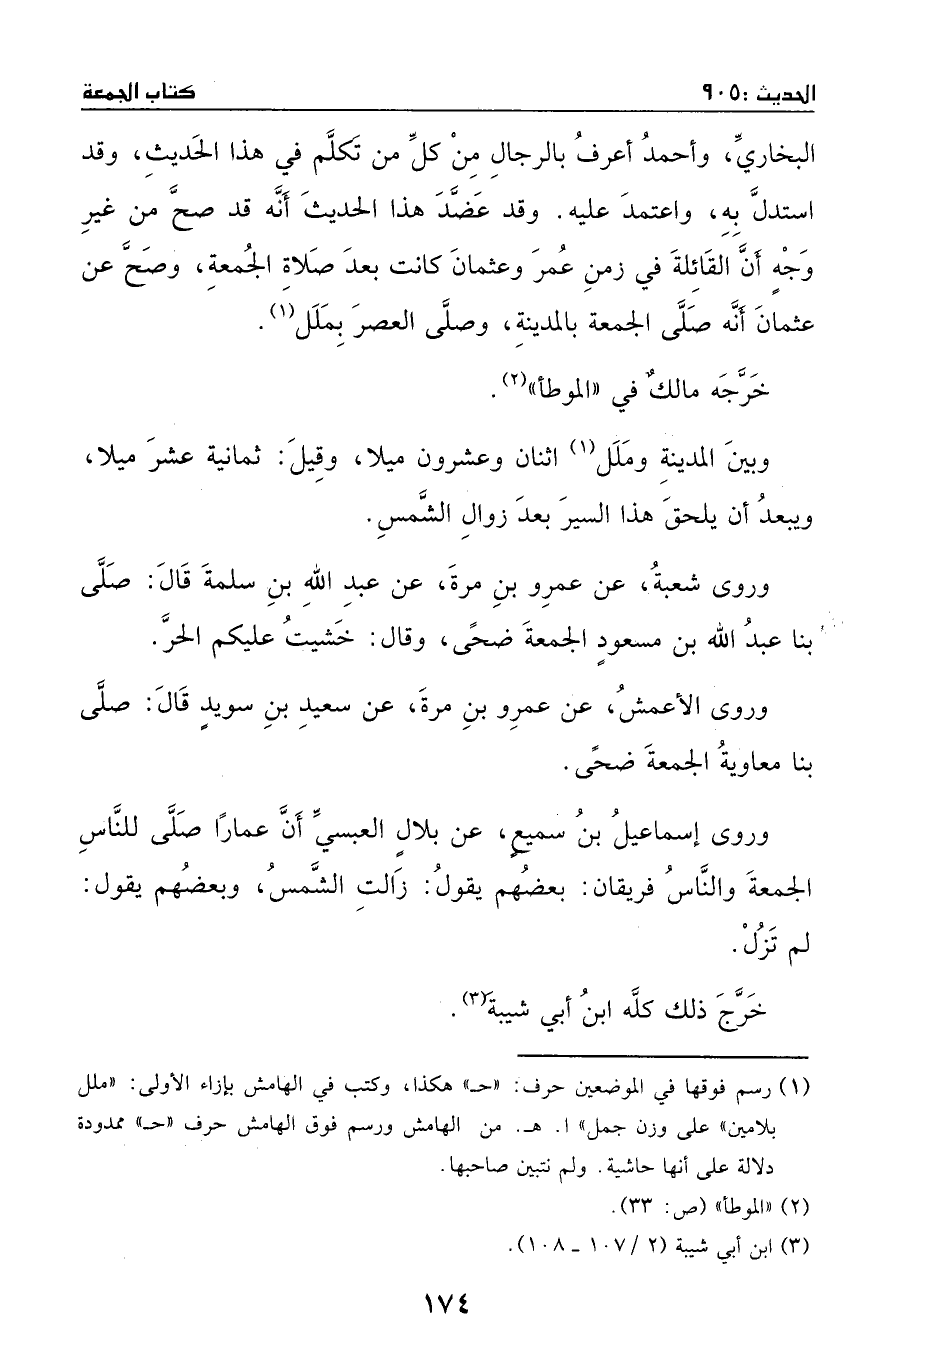 الحديث : ٩٠٥
كتاب الجمعة
البخاريِّ، وأحمدُ أعرفُ بالرجالِ مِنْ كلِّ من تَكلَّم في هذا الحَديثِ، وقد
استدلَّ بِهِ، واعتمدَ عليه. وقد عَضَّدَ هذا الحديثَ أَنَّه قد صحَّ من غيرِ
وَجْهٍ أَنَّ القَائِلةَ في زمنِ عُمرَ وعثمانَ كانت بعدَ صَلَاةِ الجُمعةِ، وصَحَّ عن
عثمانَ أَنَّه صَلَّى الجمعة بالمدينةِ، وصلَّى العصرَ بِمَلَل(١).
خَرَّجَه مالكٌ في «الموطأ»(٢).
وبينَ المدينةِ ومَلَل(١) اثنان وعشرون ميلا، وقِيلَ: ثمانية عشرَ ميلا،
ويبعدُ أن يلحقَ هذا السيرَ بعدَ زوالِ الشَّمسِ.
وروى شعبةُ، عن عمرِو بنِ مرةَ، عن عبدِ اللهِ بنِ سلمةَ قَالَ: صَلَّى
بنا عبدُ الله بن مسعودٍ الجمعةَ ضحًى، وقال: خَشيتُ عليكم الحرَّ.
وروى الأعمشُ، عن عمرِو بنِ مرةَ، عن سعيدِ بنِ سويدٍ قَالَ: صلَّى
بنا معاويةُ الجمعةَ ضحًى.
وروى إسماعيلُ بنُ سميعٍ، عن بلالٍ العبسيِّ أَنَّ عمارًا صَلَّى للنَّاسِ
الجمعةَ والنَّاسُ فريقان: بعضُهم يقولُ: زَالَتِ الشَّمسُ، وبعضُهم يقول:
لم تَزُلْ.
خَرَّجَ ذلك كلَّه ابنُ أبي شيبةَ(٣).
(١) رسم فوقها في الموضعين حرف: «حـ» هكذا، وكتب في الهامش بإزاء الأولى: «ملل
بلامين» على وزن جمل» ا. هـ. من الهامش ورسم فوق الهامش حرف «حـ» ممدودة
دلالة على أنها حاشية. ولم نتبين صاحبها.
(٢) «الموطأ» (ص: ٣٣).
(٣) ابن أبي شيبة (٢ / ١٠٧ - ١٠٨).
١٧٤